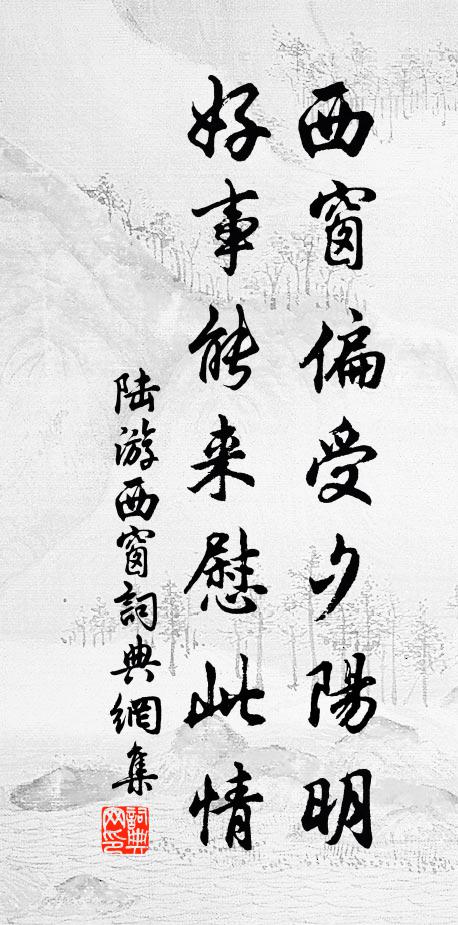 西窗偏受夕陽明
好事能来慰此情
陆游西窗詞典網集
詞典网印